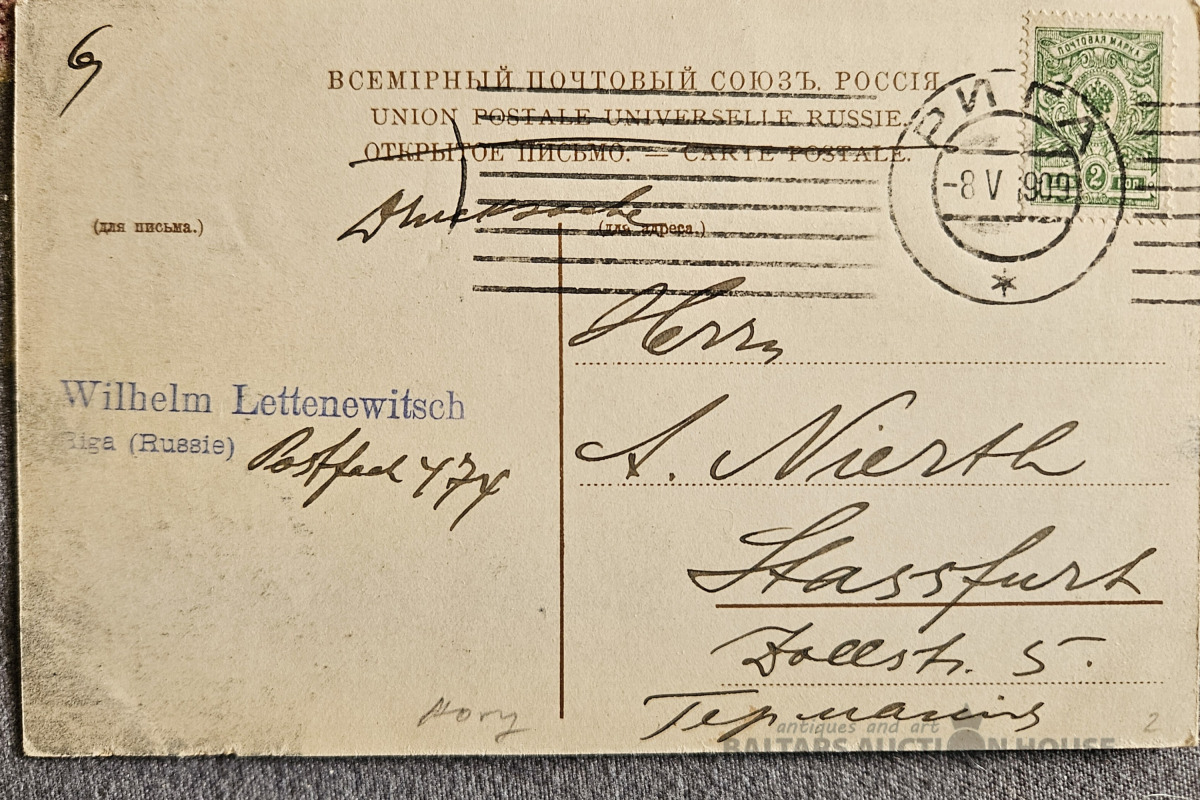 ВСЕМІРНЫЙ ПОЧТОВЫЙ СОЮЗЪ. РОССІЯ
UNION POSTALE UNIVERSELLE RUSSIE.
ОТКРЫТОЕ ПИСЬМО. — CARTE POSTALE.
РИГА
-8 V 909
2 КОП.
Drucksache
(для письма.)
(для адреса.)
Herrn
Wilhelm Lettenewitsch
Riga (Russie)
Postfach 474
A. Nierth
Stassfurt
Zollstr. 5.
Германія
antiques and art
BALTARS AUCTION HOUSE
2